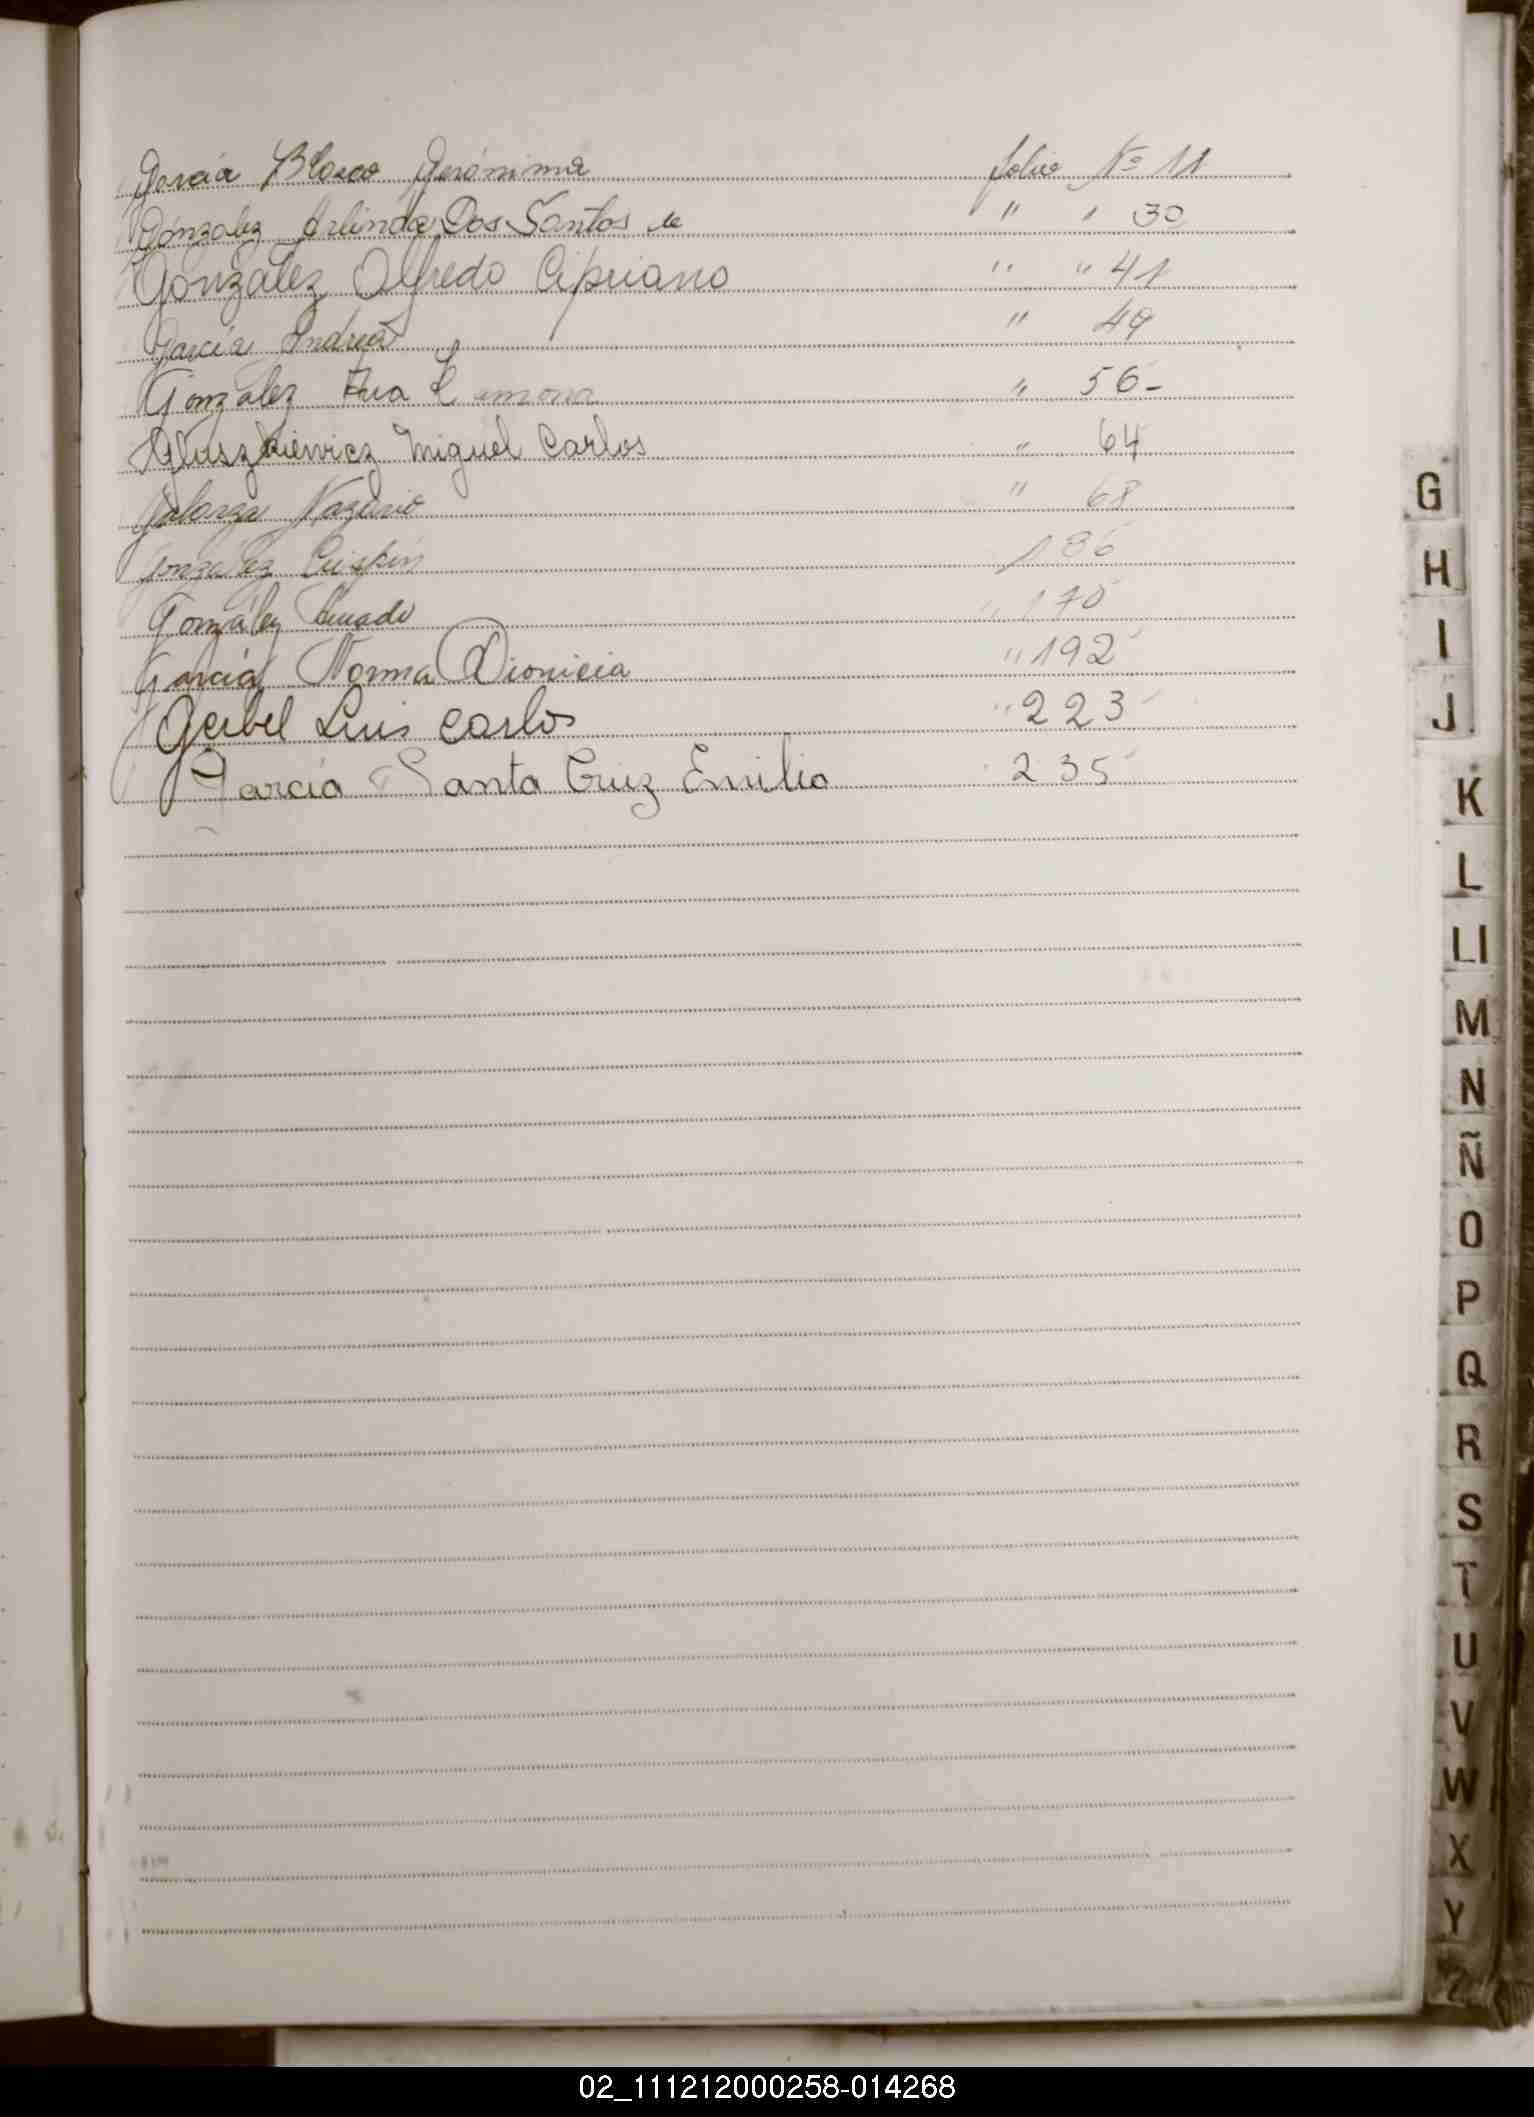 García Blasco Gerónima folio Nº 11
Gónzalez Arlinda Dos Santos de " " 30
González Alfredo Cipriano " " 41
García Andrea " 49
González Ana Ramona " 56-
Gluszkiewicz Miguel Carlos " 64
Galarza Nazario " 68
González Crispin 136
González " 170
García Norma Dionicia " 192
Geibel Luis Carlos " 223
García Santa Cruz Emilio 235
G
H
I
J
K
L
Ll
M
N
Ñ
O
P
Q
R
S
T
U
V
W
X
Y
Z
02_111212000258-014268